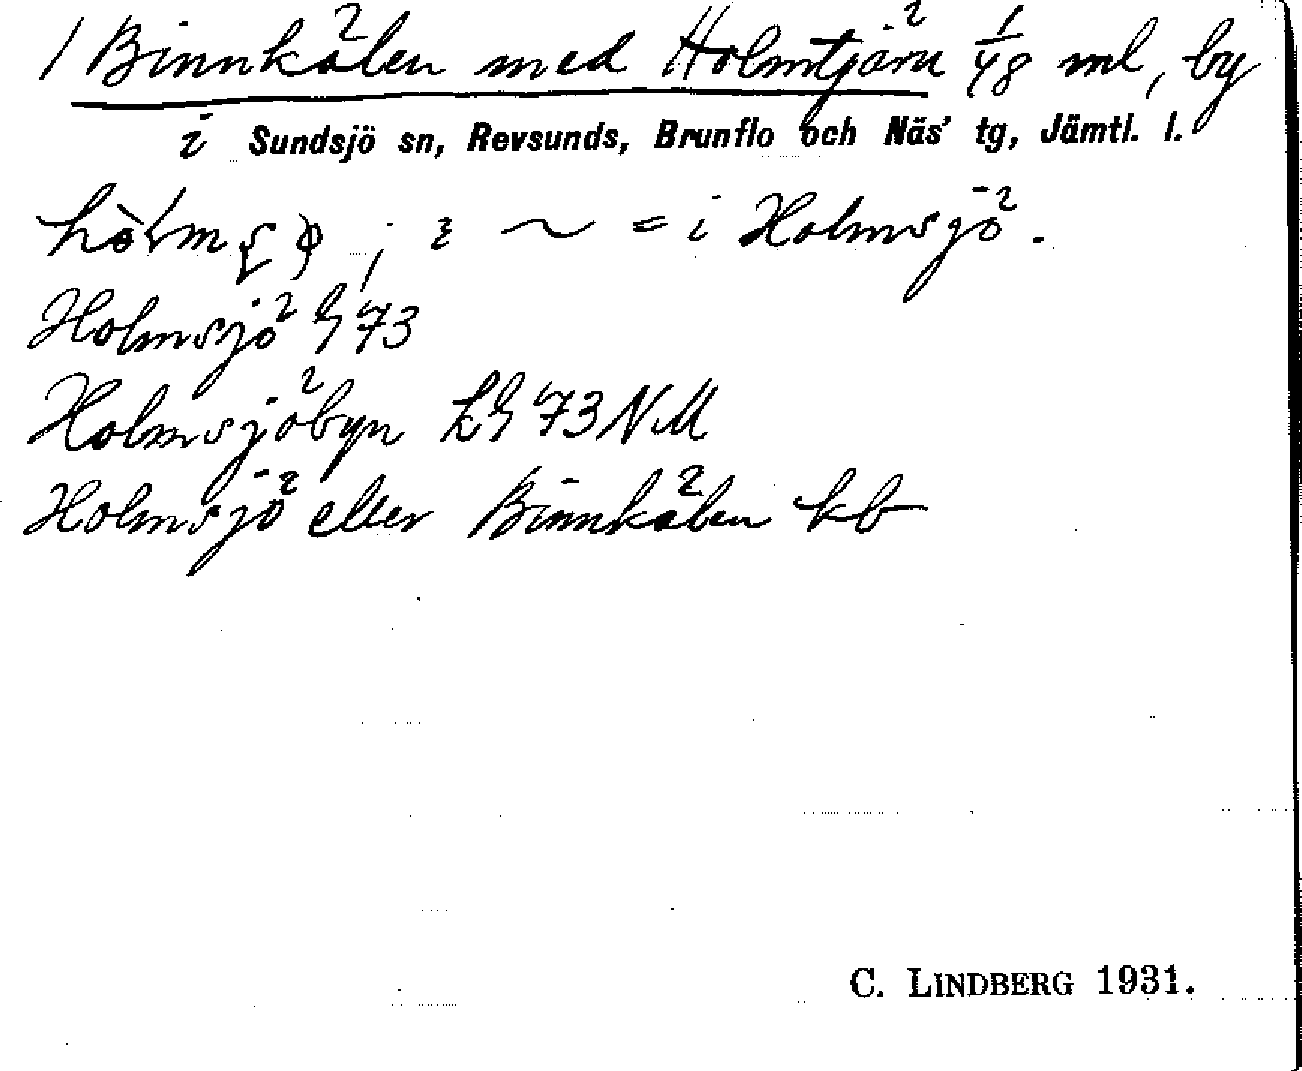 1 Binnkälen med Holmtjärn 1/48 ml, by
i Sundsjö sn, Revsunds, Brunflo och Näs' tg, Jämtl. l.
; ~ = i Holmsjö.
Holmsjö 73
Holmsjöbyn 73 NM
Holmsjö eller Binnkälen kb
C. LINDBERG 1931.